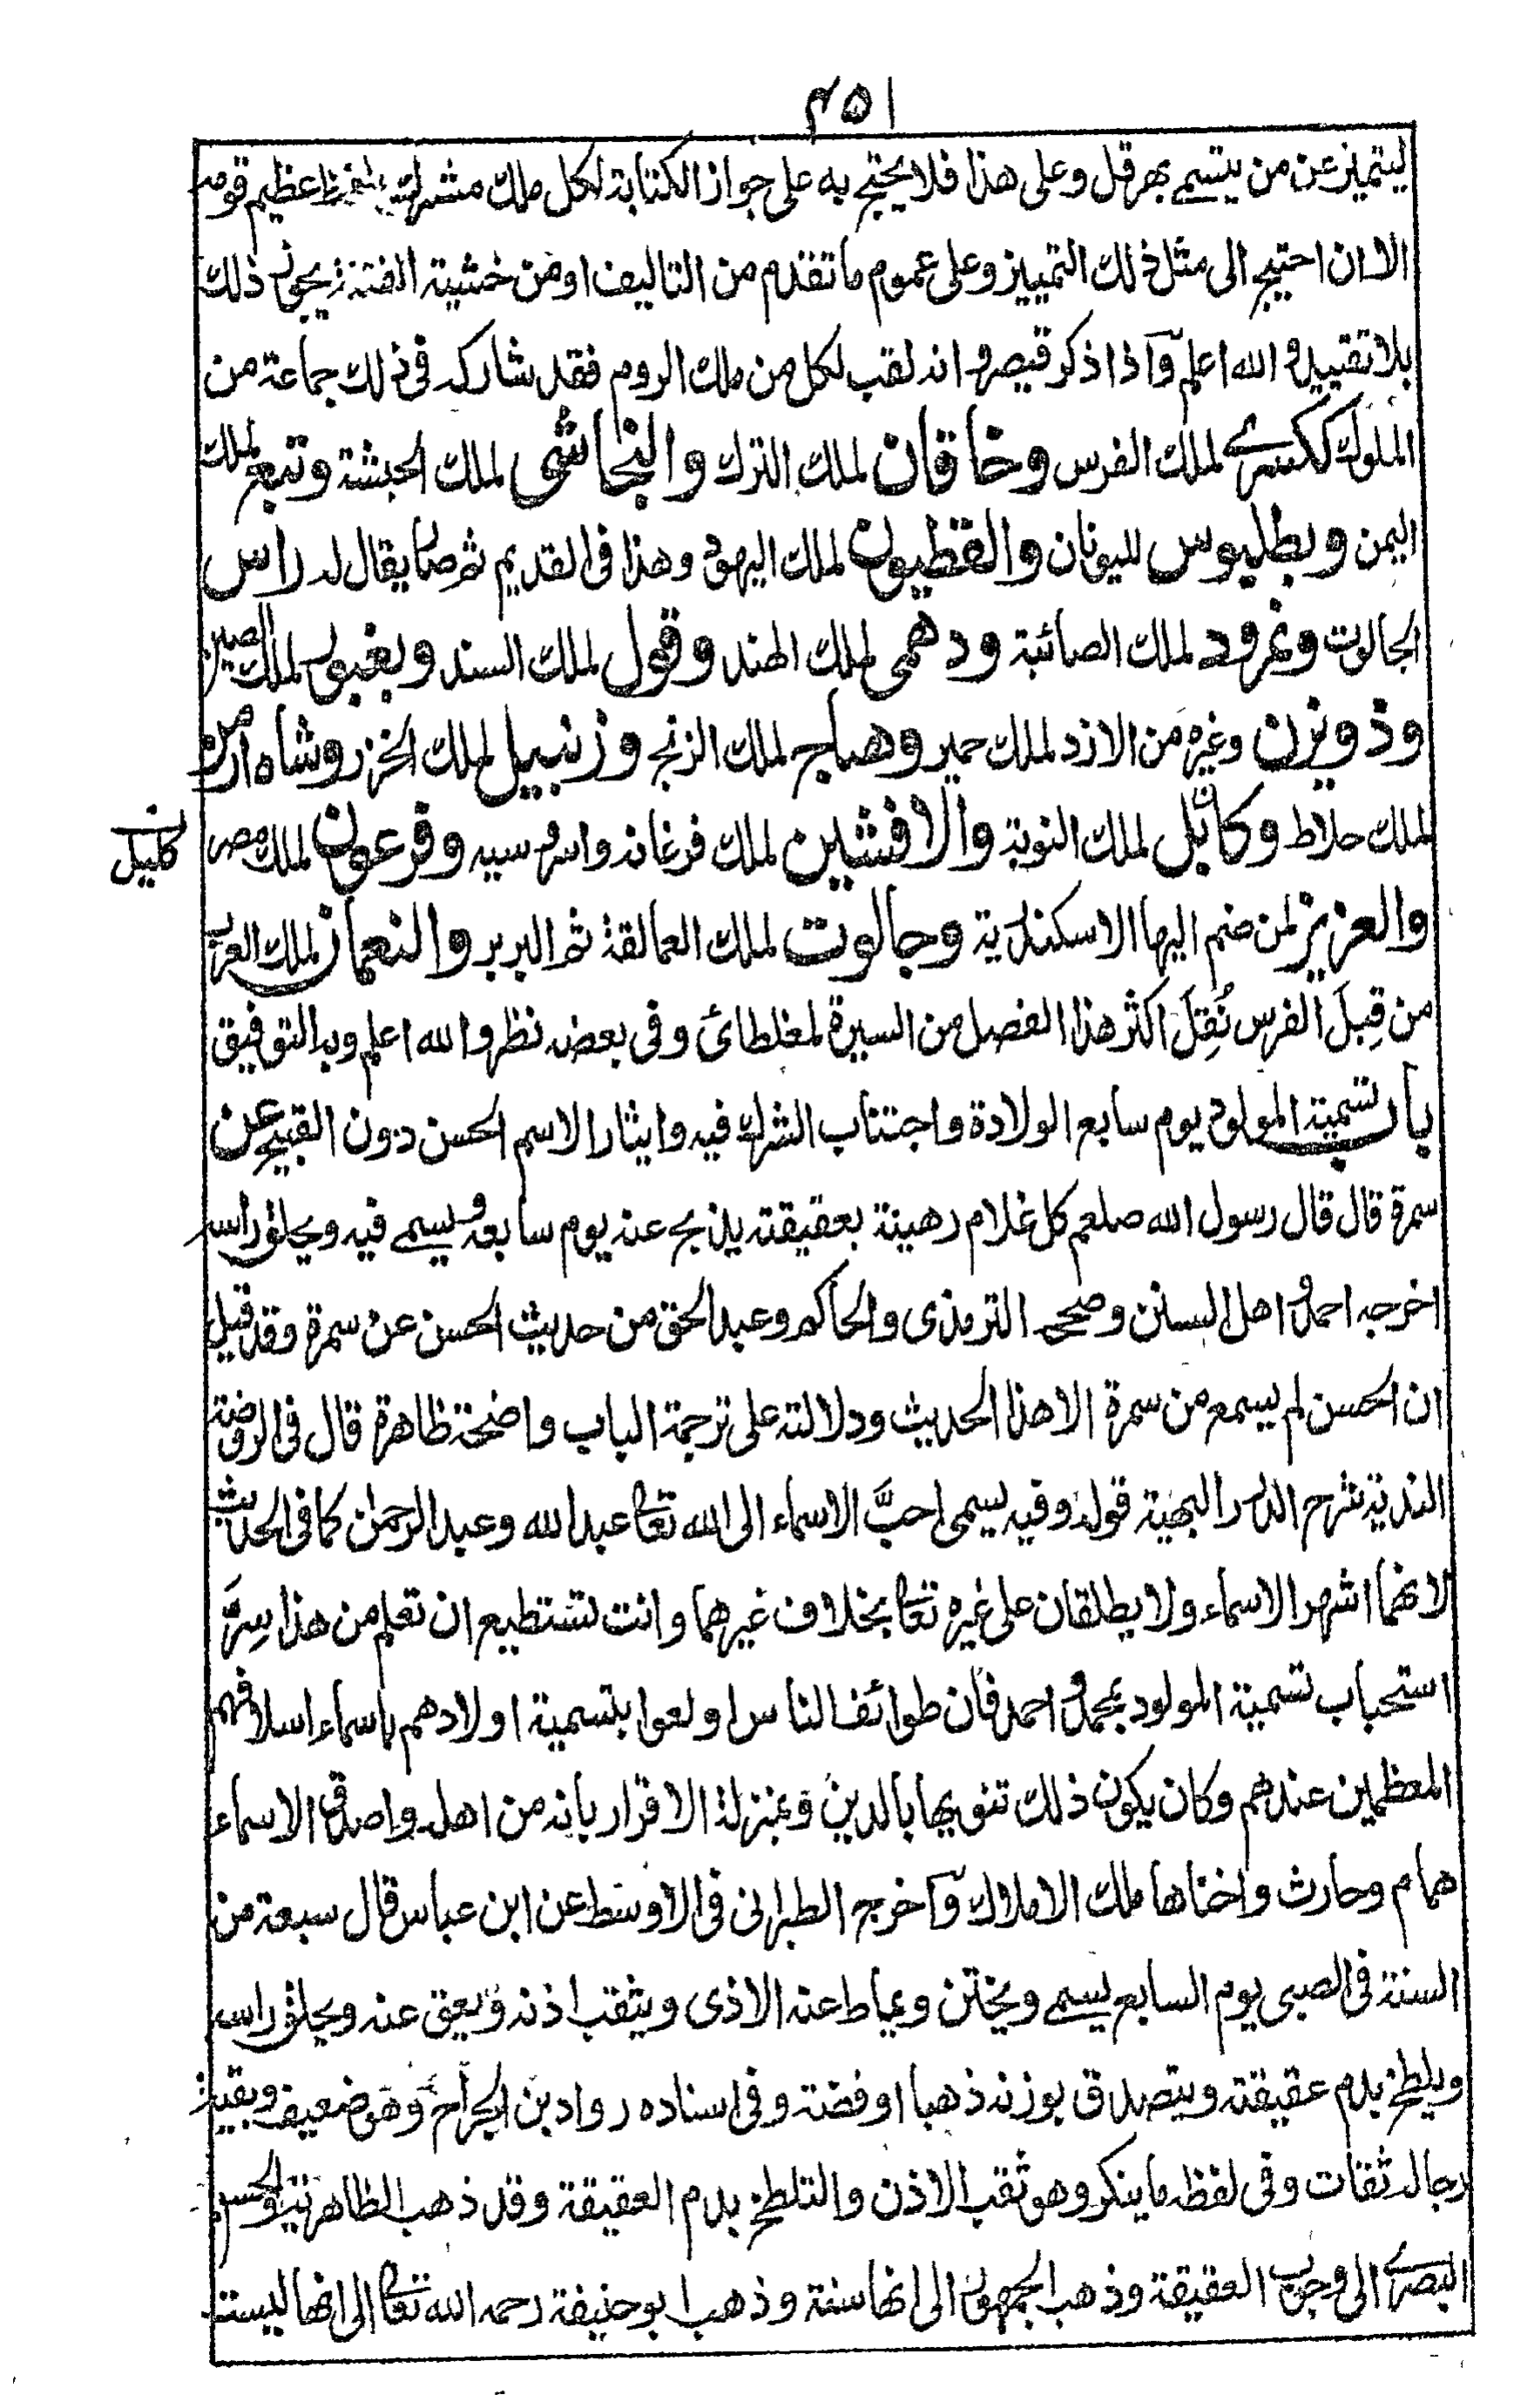 ٤٥١
ليتميز عن من يتسمى بهرقل وعلى هذا فلا يحتج به على جواز الكتابة لكل ملك مشرك بلفظ عظيم قومه
الا ان احتيج الى مثل ذلك التمييز وعلى عموم ما تقدم من التاليف او من خشية الفتنة يجوز ذلك
بلا تقييد والله اعلم واذا ذكر قيصر وانه لقب لكل من ملك الروم فقد شاركه في ذلك جماعة من
الملوك ككسرى لملك الفرس وخاقان لملك الترك والنجاشى لملك الحبشة وتبع لملك
اليمن وبطليوس لليونان والقطيون لملك اليهود وهذا فى القديم ثم صار يقال له راس
الجالوت ونمرود لملك الصائبة ودهمى لملك الهند وقول لملك السند وبغبور لملك الصين
وذو يزن وغيره من الازد لملك حمير وهياج لملك الزنج وزنبيل لملك الخزر وشاه ارمن
لملك خلاط وكابل لملك النوبة والافشين لملك فرغانه واسروسيه وفرعون لملك مصر
كليل
والعزيز لمن ضم اليها الاسكندرية وجالوت لملك العمالقة ثم البربر والنعمان لملك العرب
من قِبَل الفرس نُقِلَ اكثر هذا الفصل من السيرة لمغلطائ وفى بعضه نظر والله اعلم وبه التوفيق
باب تسمية المولود يوم سابع الولادة واجتناب الشرك فيه وايثار الاسم الحسن دون القبيح عن
سمرة قال قال رسول الله صلعم كل غلام رهينة بعقيقته يذبح عنه يوم سابعه ويسمى فيه ويحلق راسه
اخرجه احمد واهل السنن وصححه الترمذى والحاكم وعبد الحق من حديث الحسن عن سمرة وقد قيل
ان الحسن لم يسمع من سمرة الا هذا الحديث ودلالته على ترجمة الباب واضحة ظاهرة قال فى الروضة
الندية شرح الدرر البهية قوله وفيه يسمى احبَّ الاسماء الى الله تعا عبد الله وعبد الرحمن كما فى الحديث
لانهما اشهر الاسماء ولا يطلقان على غيره تعا بخلاف غيرهما وانت تستطيع ان تعلم من هذا سِرَّ
استحباب تسمية المولود بمحمد واحمد فان طوائف الناس اولعوا بتسمية اولادهم باسماء اسلافهم
المعظمين عندهم وكان يكون ذلك تنويها بالدين وبمنزلة الاقرار بانه من اهله واصدق الاسماء
همام وحارث واخناها ملك الاملاك واخرجه الطبرانى فى الاوسط عن ابن عباس قال سبعة من
السنة فى الصبى يوم السابع يسمى ويختن ويماط عنه الاذى ويثقب اذنه ويعق عنه ويحلق راسه
ويلطخ بدم عقيقته ويتصدق بوزنه ذهبا او فضة وفى اسناده رواد بن الجراح وهو ضعيف وبقية
رجاله ثقات وفى لفظه ما ينكر وهو ثقب الاذن والتلطخ بدم العقيقة وقد ذهب الظاهرية والحسن
البصرى الى وجوب العقيقة وذهب الجمهور الى انها سنة وذهب ابو حنيفة رحمه الله تعا الى انها ليست